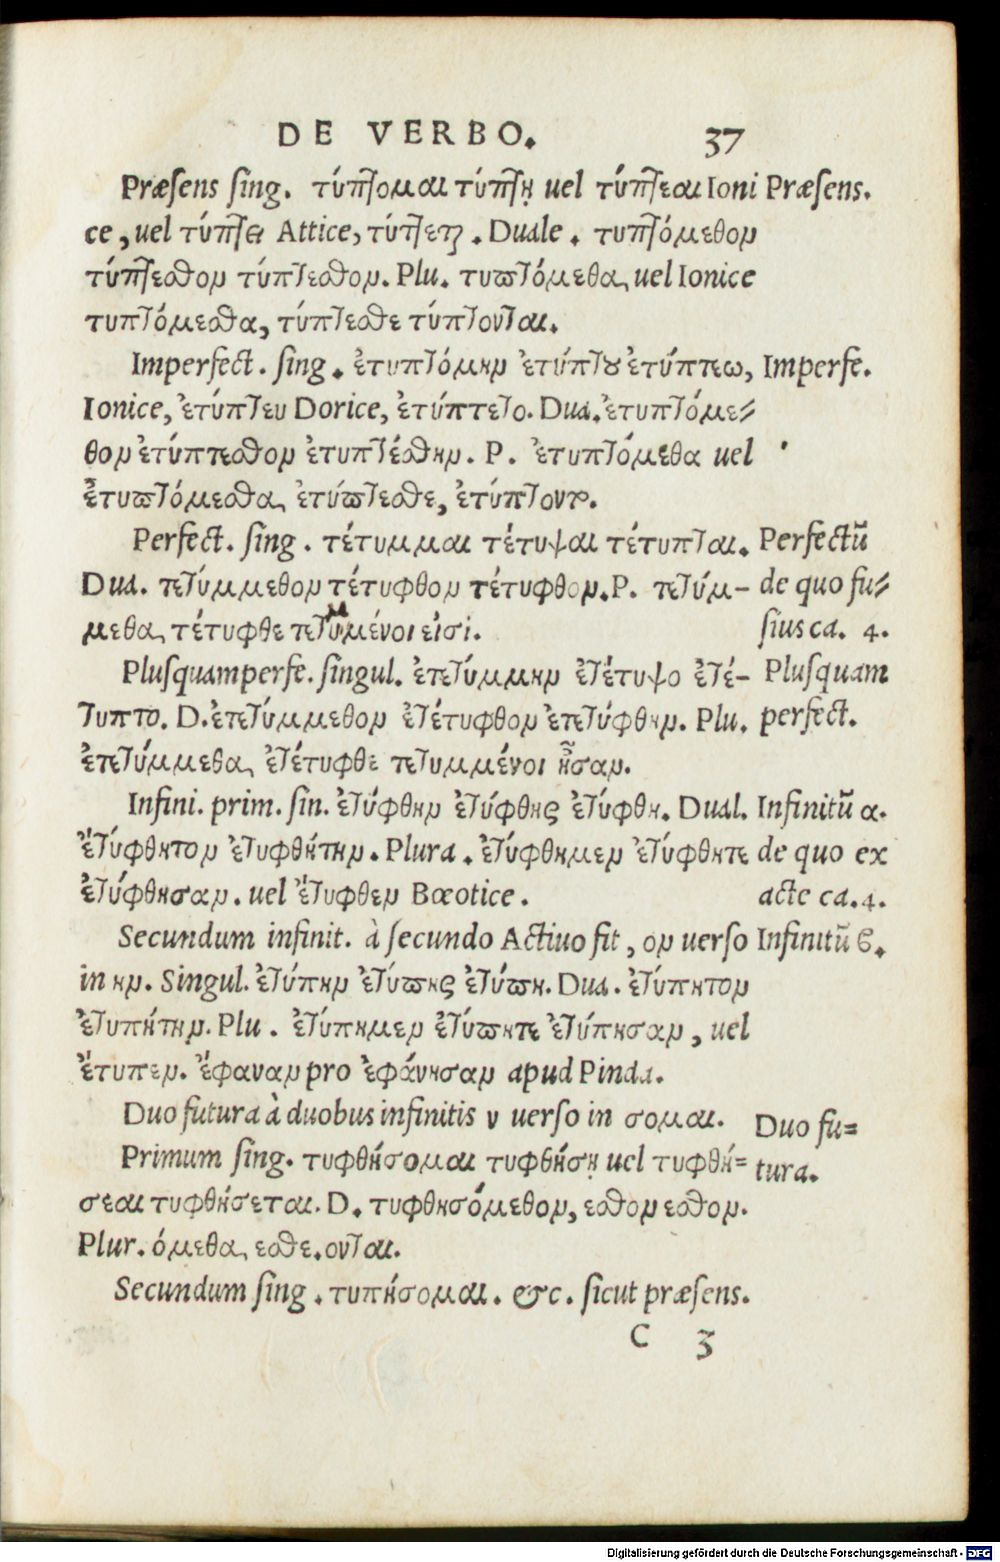 DE VERBO. 37
Præsens sing. τύπτομαι τύπτῃ uel τύπτεαι Ioni Præsens.
ce, uel τύπτει Attice, τύπτεται. Duale. τυπτόμεθον
τύπτεσθον τύπτεσθον. Plu. τυπτόμεθα, uel Ionice
τυπτόμεσθα, τύπτεσθε τύπτονται.
Imperfect. sing. ἐτυπτόμην ἐτύπτου ἐτύπτεω, Imperfe.
Ionice, ἐτύπτευ Dorice, ἐτύπτετο. Dua. ἐτυπτόμε⸗
θον ἐτύπτεσθον ἐτυπτέσθην. P. ἐτυπτόμεθα uel
ἐτυπτόμεσθα, ἐτύπτεσθε, ἐτύπτοντο.
Perfect. sing. τέτυμμαι τέτυψαι τέτυπται. Perfectũ
Dua. τετύμμεθον τέτυφθον τέτυφθον. P. τετύμ- de quo fu⸗
μεθα, τέτυφθε τετυμμένοι εἰσί. sius ca. 4.
Plusquamperfe. singul. ἐτετύμμην ἐτέτυψο ἐτέ- Plusquam
τυπτο. D. ἐτετύμμεθον ἐτέτυφθον ἐτετύφθην. Plu. perfect.
ἐτετύμμεθα, ἐτέτυφθε τετυμμένοι ἦσαν.
Infini. prim. sin. ἐτύφθην ἐτύφθης ἐτύφθη. Dual. Infinitũ α.
ἐτύφθητον ἐτυφθήτην. Plura. ἐτύφθημεν ἐτύφθητε de quo ex
ἐτύφθησαν. uel ἔτυφθεν Bœotice. acte ca. 4.
Secundum infinit. à secundo Actiuo fit, ον uerso Infinitũ ϐ.
in ην. Singul. ἐτύπην ἐτύπης ἐτύπη. Dua. ἐτύπητον
ἐτυπήτην. Plu. ἐτύπημεν ἐτύπητε ἐτύπησαν, uel
ἔτυπεν. ἔφαναν pro ἐφάνησαν apud Pinda.
Duo futura à duobus infinitis ν uerso in σομαι. Duo fu=
Primum sing. τυφθήσομαι τυφθήσῃ uel τυφθή= tura.
σεαι τυφθήσεται. D. τυφθησόμεθον, εσθον εσθον.
Plur. όμεθα, εσθε. ονται.
Secundum sing. τυπήσομαι. &c. sicut præsens.
C 3
Digitalisierung gefördert durch die Deutsche Forschungsgemeinschaft - DFG